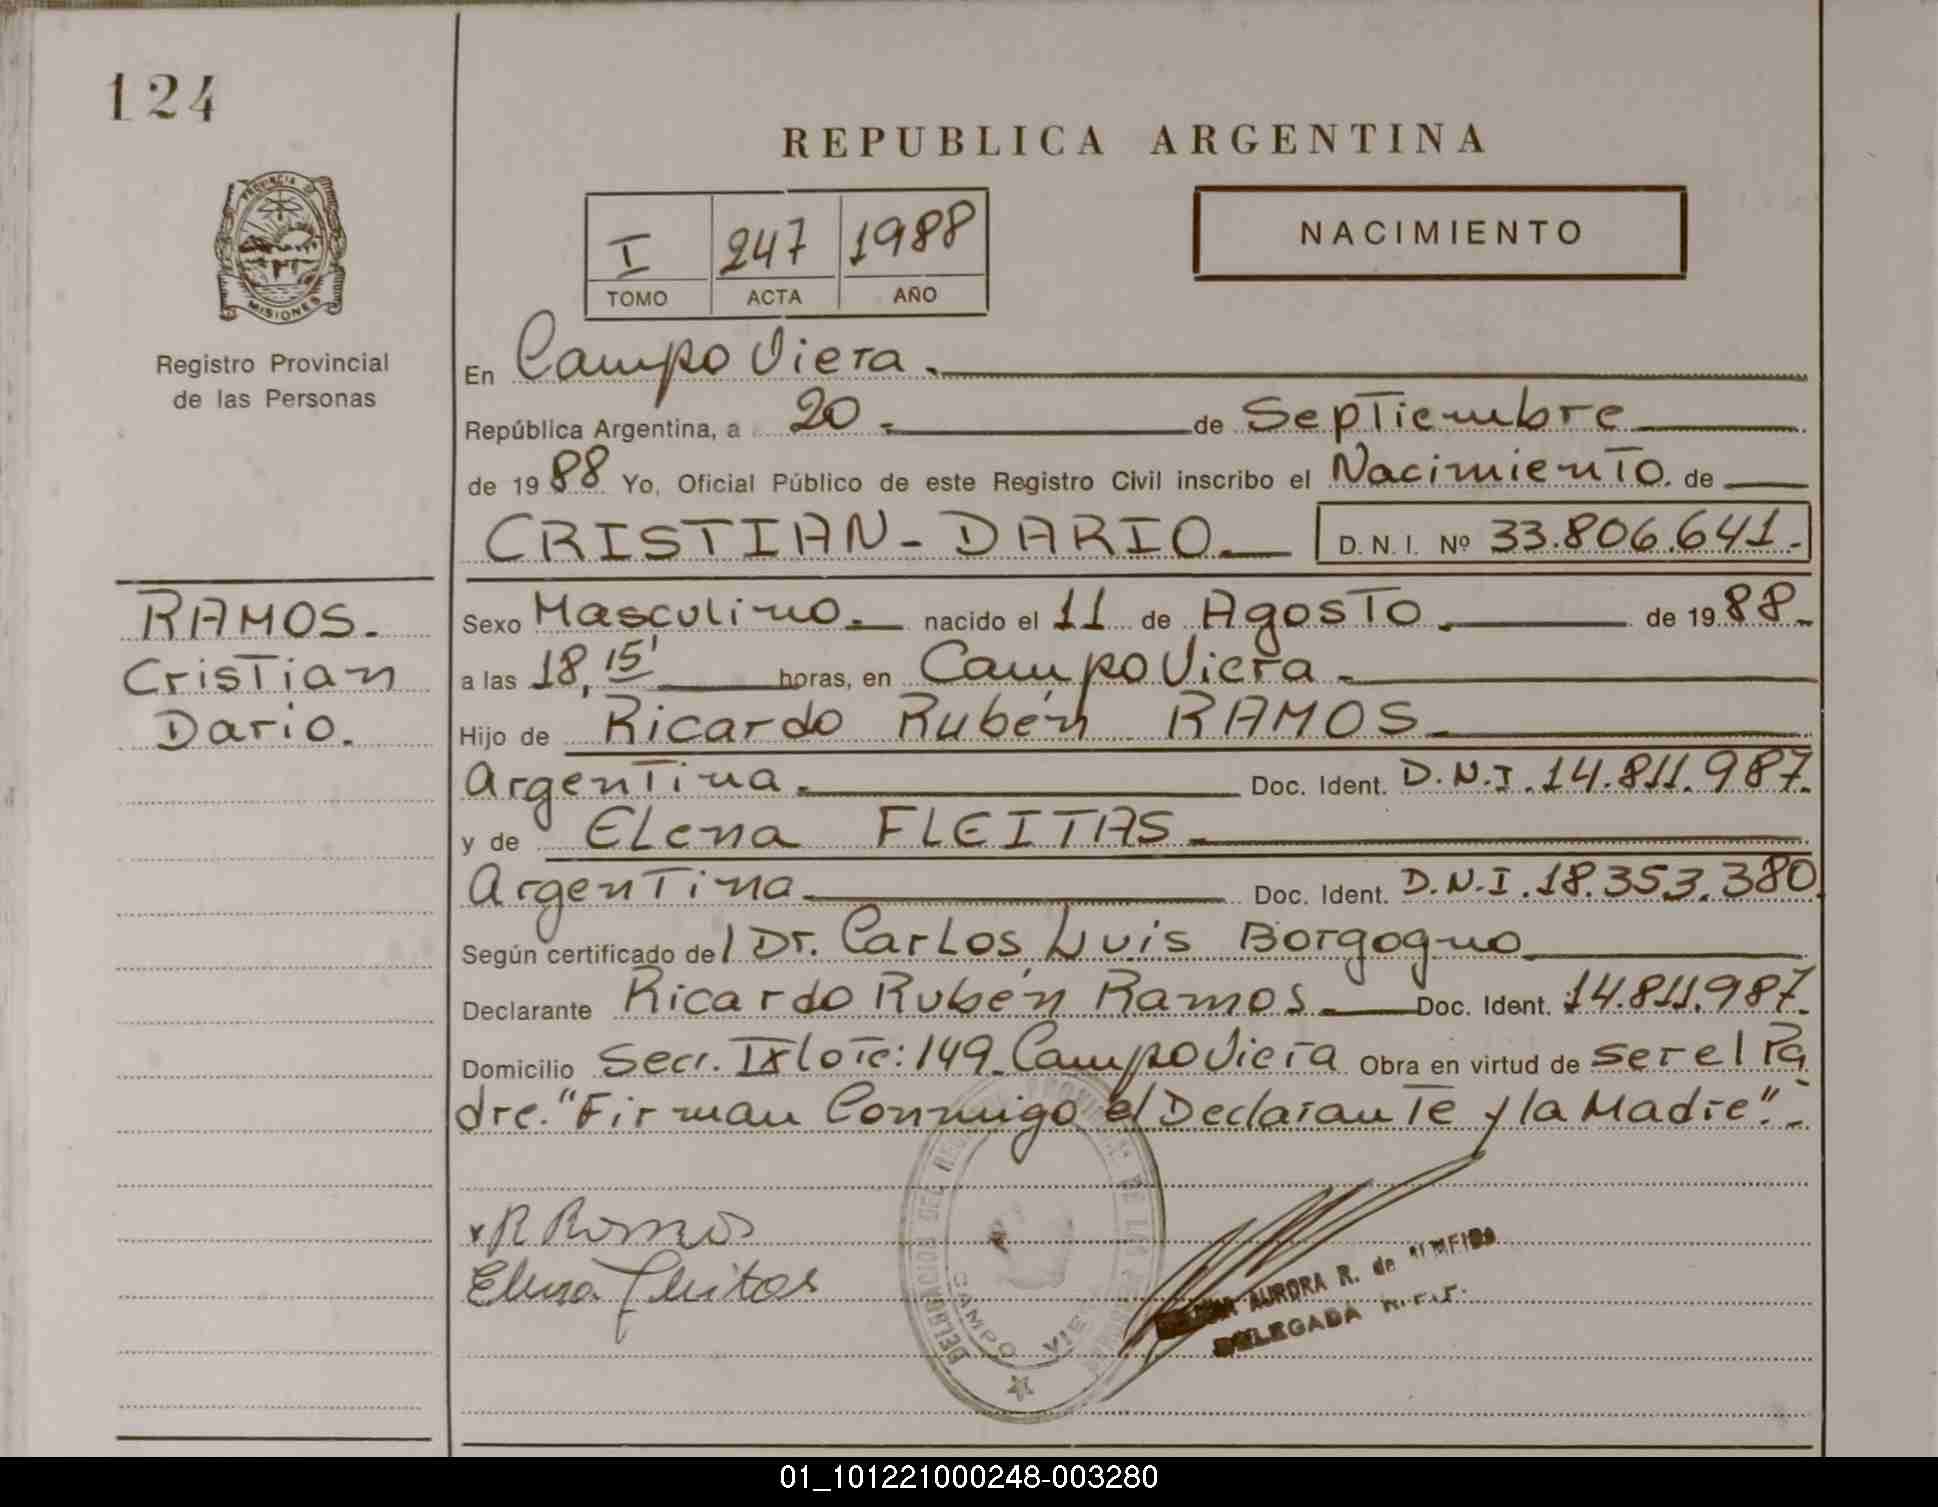 124
REPUBLICA ARGENTINA
PROVINCIA DE
MISIONES
I 247 1988
TOMO ACTA AÑO
NACIMIENTO
Registro Provincial
de las Personas
En Campo Viera.
República Argentina, a 20 de Septiembre
de 1988 Yo, Oficial Público de este Registro Civil inscribo el Nacimiento. de
CRISTIAN-DARIO. D. N. I. Nº 33.806.641.-
RAMOS.
Cristian
Dario.
Sexo Masculino. nacido el 11 de Agosto. de 1988.-
a las 18,15' horas, en Campo Viera.
Hijo de Ricardo Rubén RAMOS.
Argentina. Doc. Ident. D.N.I. 14.811.987.
y de Elena FLEITAS.
Argentina. Doc. Ident. D.N.I. 18.353.380.
Según certificado del Dr. Carlos Luis Borgogno
Declarante Ricardo Rubén Ramos. Doc. Ident. 14.811.987.
Domicilio Secc. IX lote: 149. Campo Viera Obra en virtud de ser el Pa
dre. "Firman Conmigo el Declarante y la Madre".-
R Ramos
Elena Fleitas
DELEGACION DEL REGISTRO PROVINCIAL DE LAS PERSONAS
CAMPO VIERA
AURORA R. de ALMEIDA
DELEGADA
01_101221000248-003280